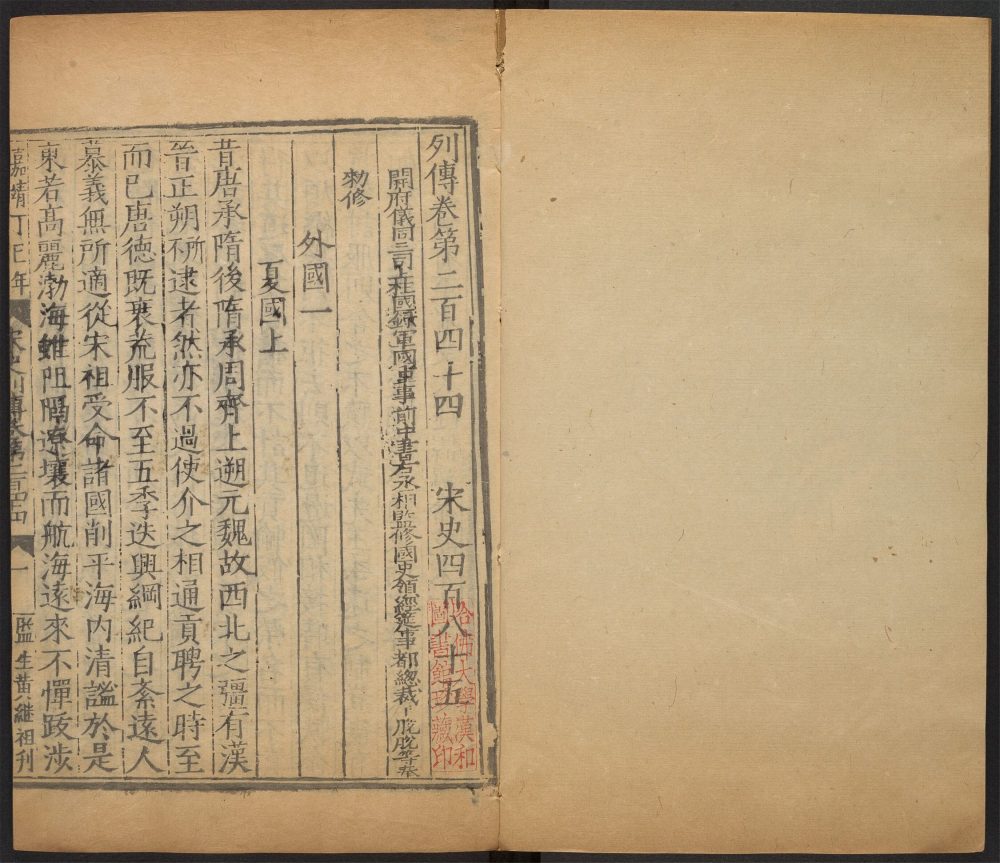 列傳卷第二百四十四 宋史四百八十五
開府儀同三司上柱國錄軍國重事前中書右丞相監修國史領經筵事都總裁臣脫脫等奉
勑修
外國一
夏國上
昔唐承隋後隋承周齊上遡元魏故西北之疆有漢
晉正朔所不逮者然亦不過使介之相通貢聘之時至
而已唐德既衰荒服不至五季迭興綱紀自紊遠人
慕義無所適從宋祖受命諸國削平海内清謐於是
東若高麗渤海雖阻隔遼壤而航海遠來不憚跋涉
嘉靖丁巳年 宋史列傳卷第二百四十四 一 監生黃繼祖刊
哈佛大學漢和
圖書館珍藏印